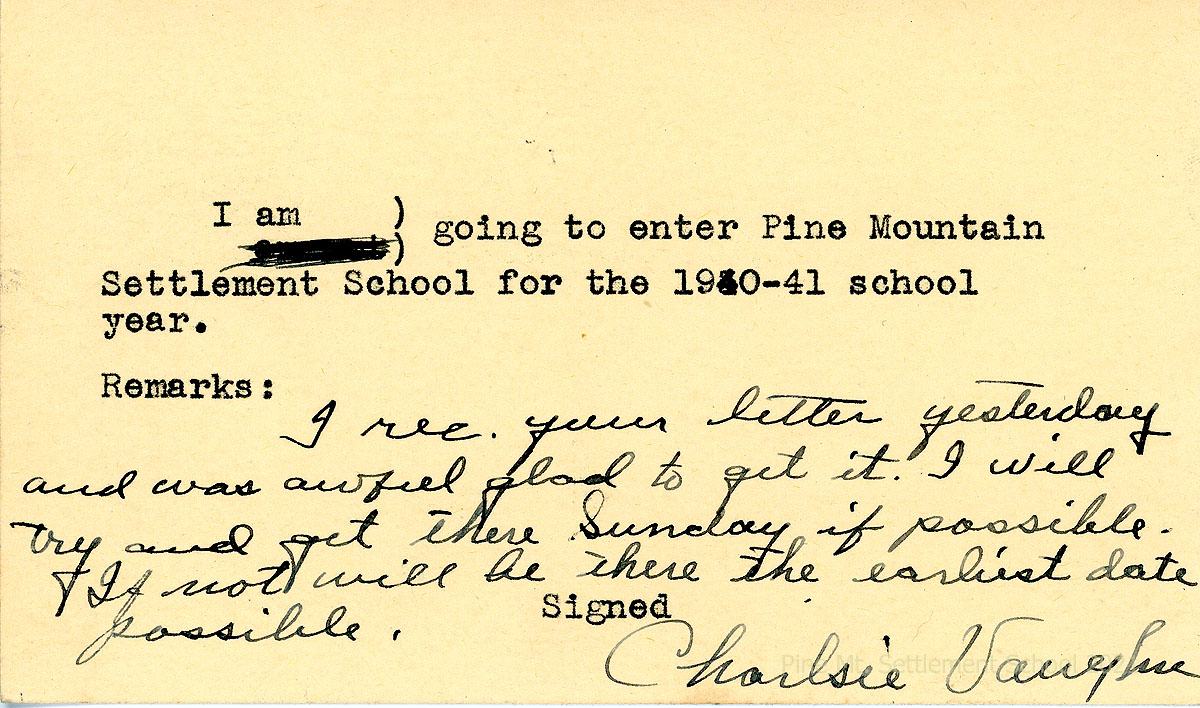 I am )
) going to enter Pine Mountain
Settlement School for the 1940-41 school
year.
Remarks:
I rec. your letter yesterday
and was awful glad to get it. I will
try and get there Sunday if possible.
If not will be there the earliest date
possible.
Signed
Charlsie Vaughn
Pine Mt. Settlement School